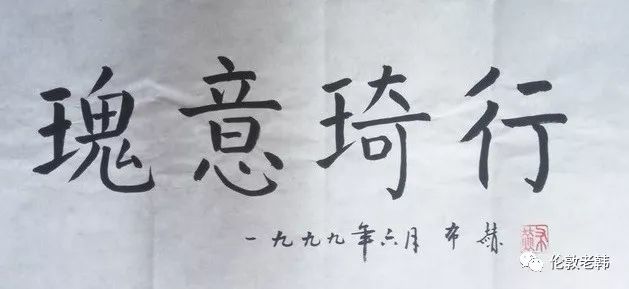 瑰意琦行
一九九九年六月 布赫
伦敦老韩